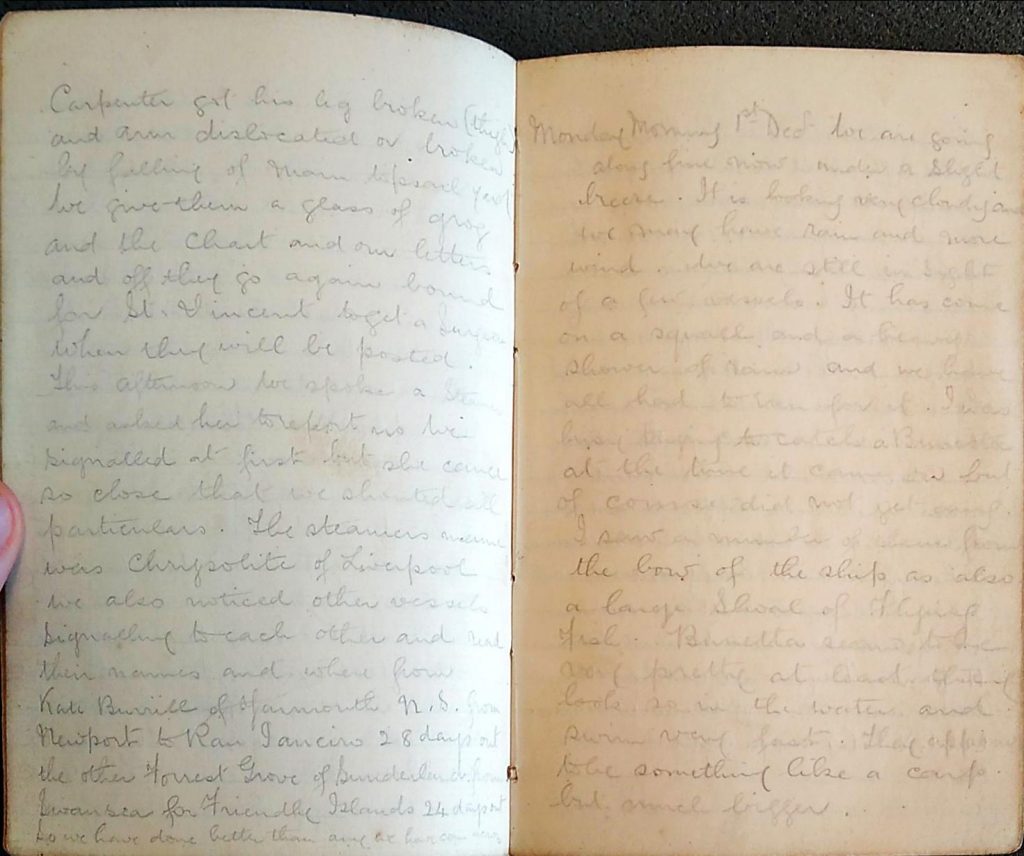 Carpenter got his leg broken (thigh)
and arm dislocated or broken
by falling of main topsail yard
We give them a glass of grog
and the chart and our letters
and off they go again bound
for St. Vincent to get a Surgeon
when they will be posted.
This afternoon we spoke a Steamer
and asked her to report us We
signalled at first but she came
so close that we shouted all
particulars. The steamers name
was Chrysolite of Liverpool
we also noticed other vessels
signalling to each other and read
their names and where from
Kate Burrill of Yarmouth N.S. from
Newport to Rau Janeiro 28 days out
the other Forrest Grove of Sunderland from
Swansea for Friendly Islands 24 days out
so we have done better than any we have come across
Monday Morning 1st Decr We are going
along fine now under a slight
breeze. It is looking very cloudy and
we may have rain and more
wind. We are still in sight
of a few vessels. It has come
on a squall and a heavy
shower of rain and we have
all had to run for it. I was
busy trying to catch a Bunetta
at the time it came on but
of course did not get any.
I saw a number of them from
the bow of the ship as also
a large Shoal of Flying
Fish. Bunetta seems to be
very pretty at least they
look so in the water and
swim very fast. They appear
to be something like a carp
but much bigger.